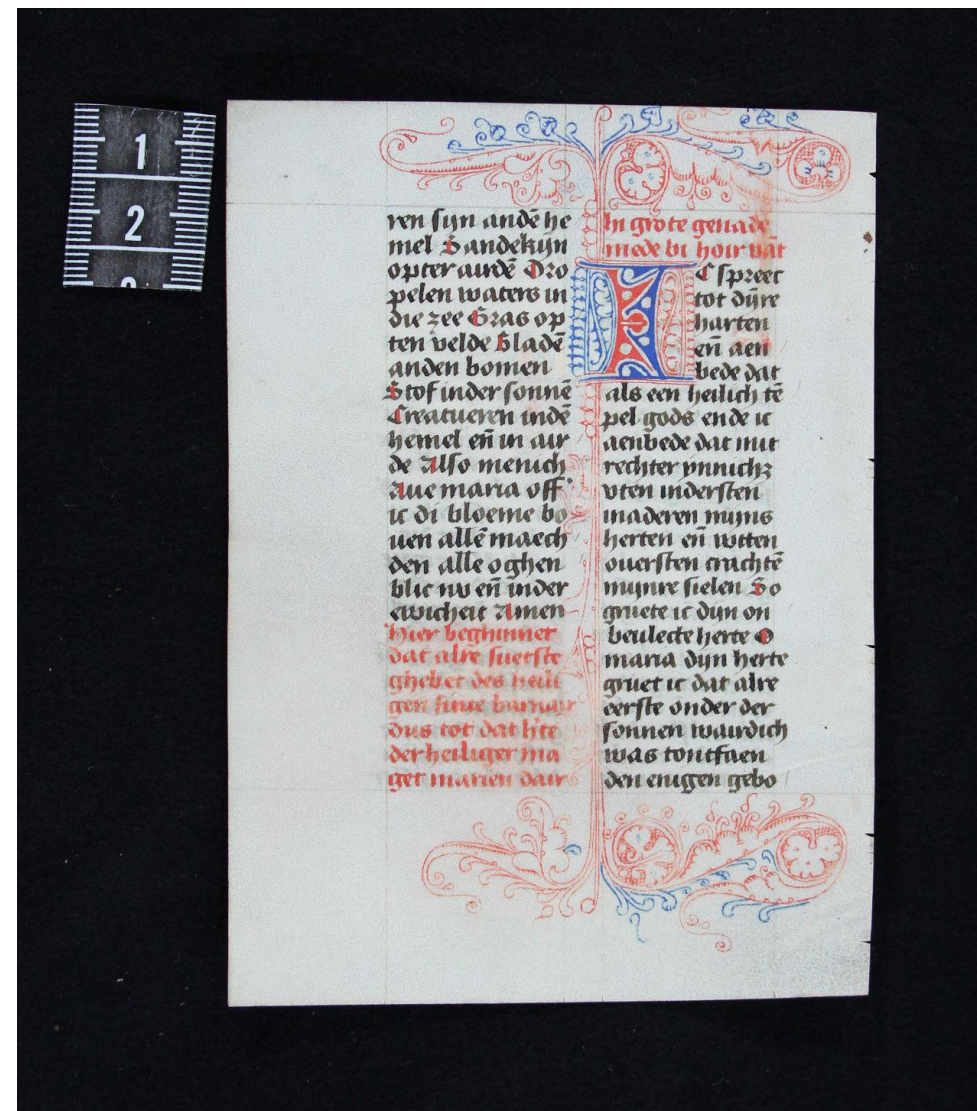 1
2
ren sijn andē he
mel Sandekijn
opter airdē Dro
pelen waters in
die zee Gras op
ten velde Bladē
anden bomen
Stof inder sonnē
Creatueren indē
hemel eñ in air
de Also menich
Aue maria off
ic di bloeme bo
uen allē maech
den alle oghen
blic nv eñ inder
ewicheit Amen
hier beghinnet
dat alre suetste
ghebet des heili
gen sinte barnar
dus tot dat h'te
der heiliger ma
get mariën dair
In grote genade
mede bi hoir vāt
IC spreec
tot dijre
harten
eñ aen
bede dat
als een heilich tē
pel gods ende ic
aenbede dat mit
rechter ynnichz
vten indersten
inaderen mijns
herten eñ wtten
ouersten crachtē
mijnre sielen So
gruete ic dijn on
beulecte herte O
maria dijn herte
gruet ic dat alre
eerste onder der
sonnen wairdich
was tontfaen
den enigen gebo